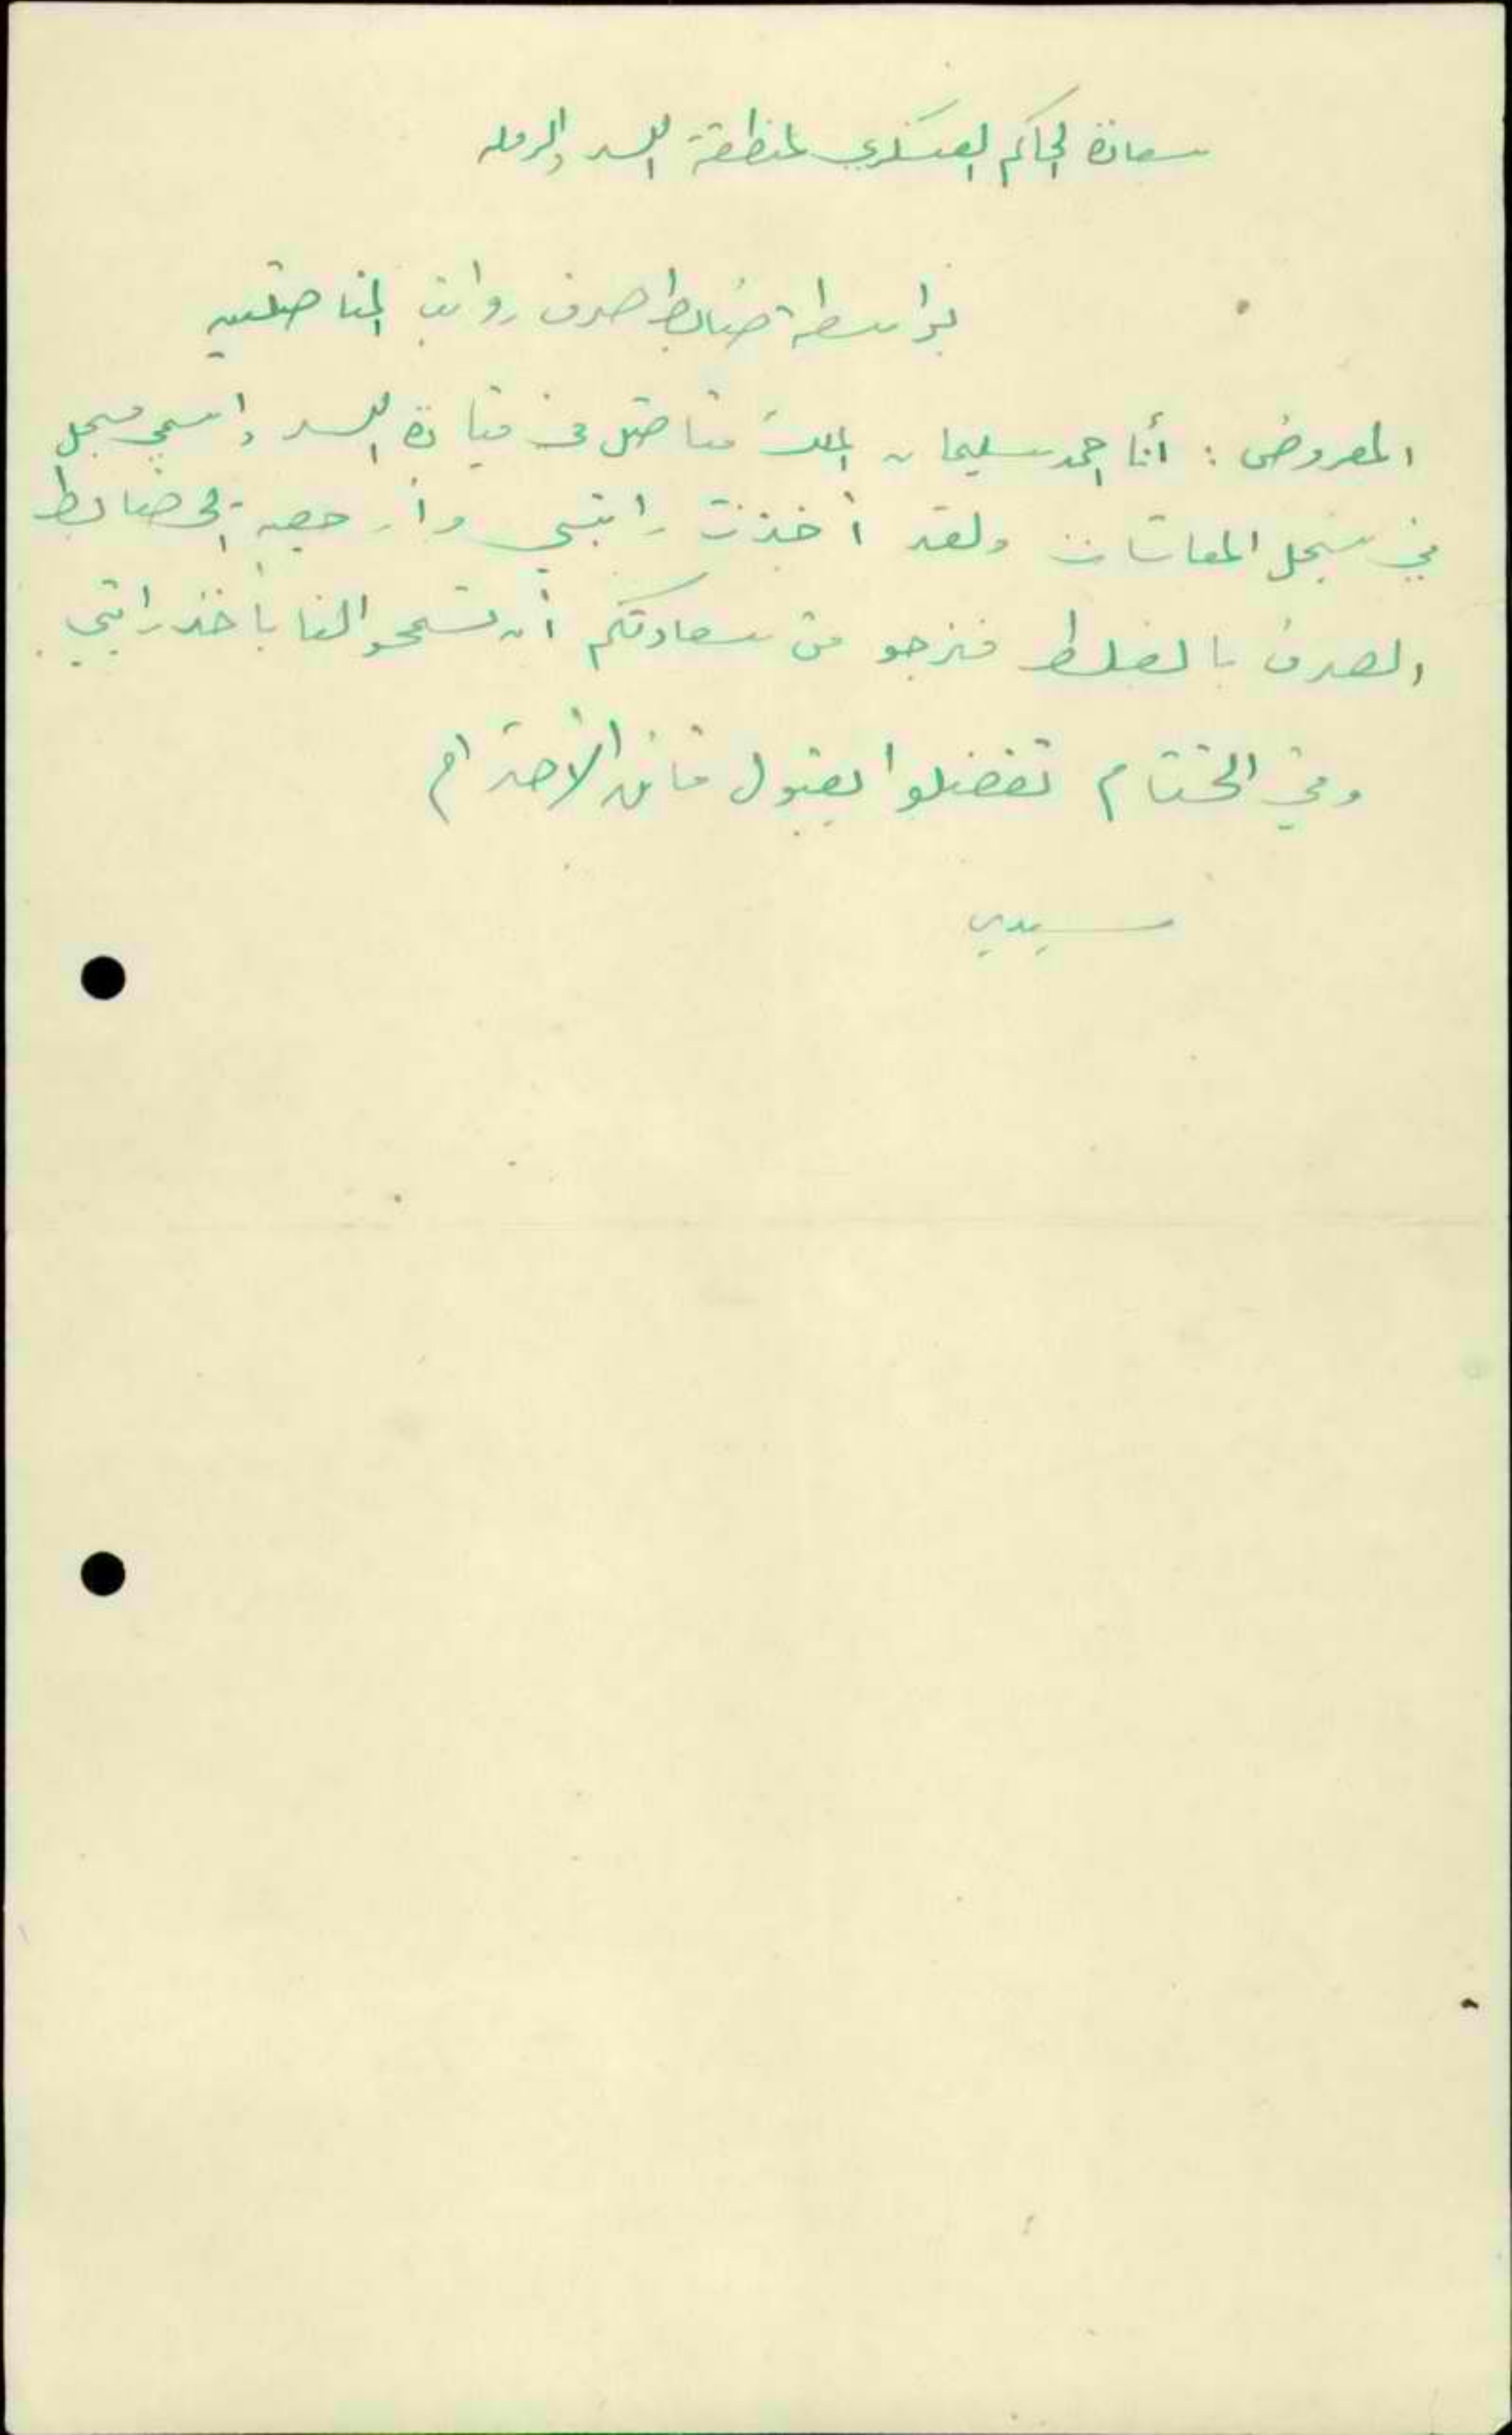 سعادة الحاكم العسكري لمنطقة اللد والرمله
بواسطة ضابط صرف رواتب المناضلين
المعروض : أنا احمد سليمان الملك مناضل في قيادة اللد واسمي مسجل
في سجل المعاشات ولقد أخذت راتبي وأرجعه الى ضابط
الصرف بالغلط فنرجو من سعادتكم أن تسمحوا لنا بأخذ راتبي .
وفي الختام تفضلوا بقبول فائق الأحترام
سيدي